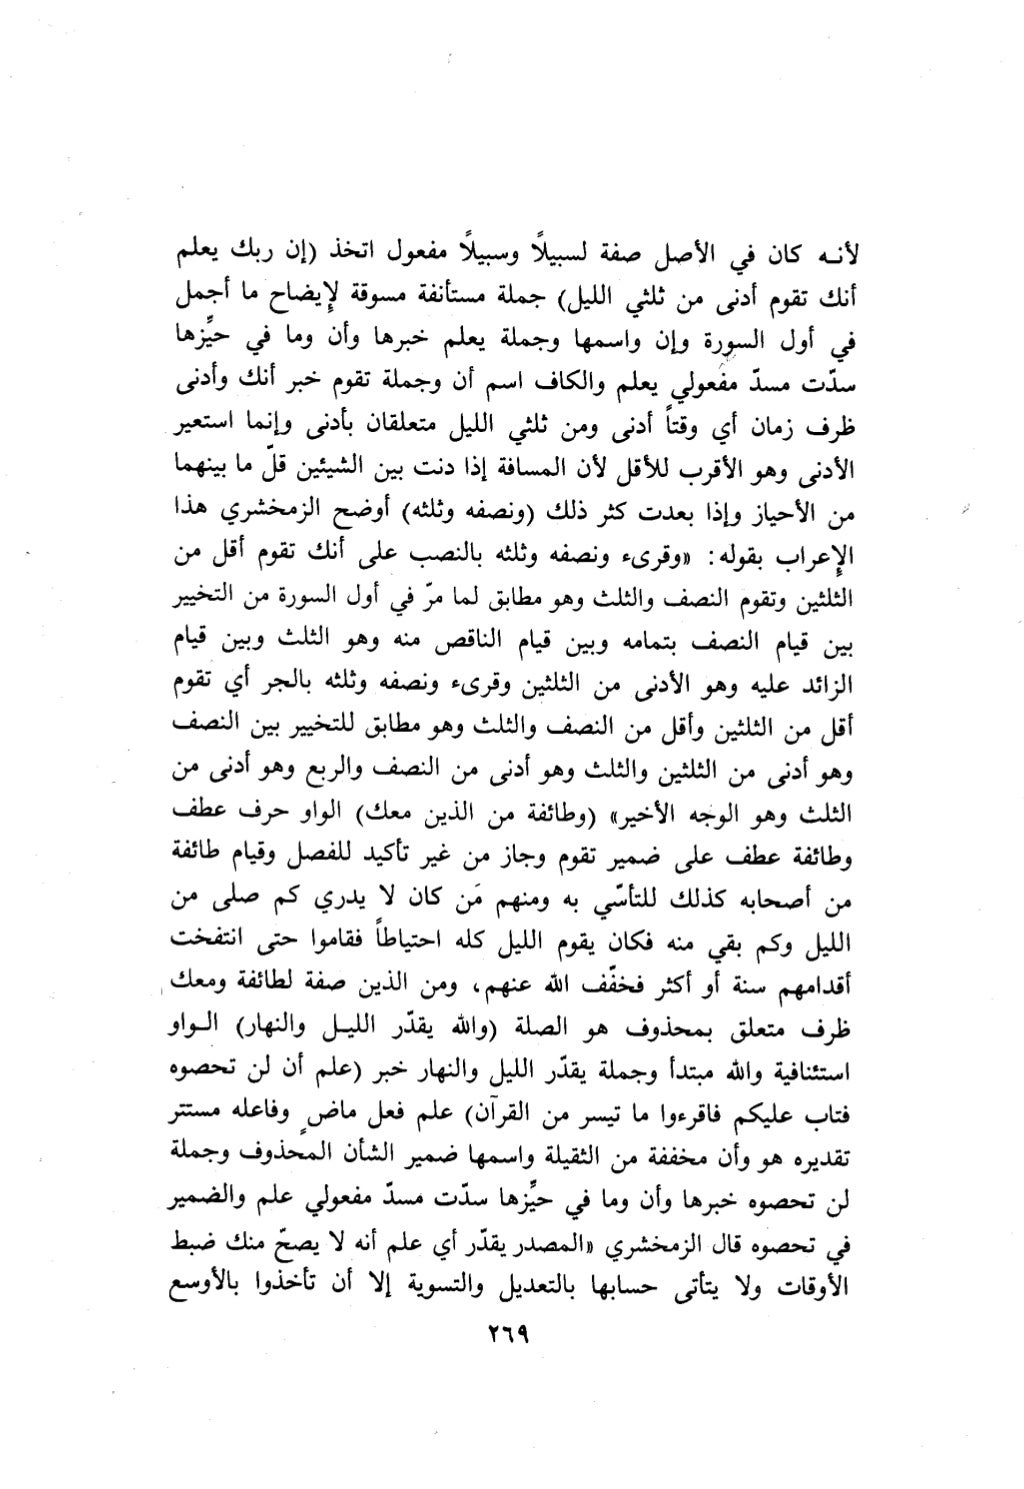 لأنـه كان في الأصل صفة لسبيلاً وسبيلاً مفعول اتخذ (إن ربك يعلم
أنك تقوم أدنى من ثلثي الليل) جملة مستأنفة مسوقة لإيضاح ما أجمل
في أول السورة وإن واسمها وجملة يعلم خبرها وأن وما في حيِّزها
سدّت مسدّ مفعولي يعلم والكاف اسم أن وجملة تقوم خبر أنك وأدنى
ظرف زمان أي وقتاً أدنى ومن ثلثي الليل متعلقان بأدنى وإنما استعير
الأدنى وهو الأقرب للأقل لأن المسافة إذا دنت بين الشيئين قلّ ما بينهما
من الأحياز وإذا بعدت كثر ذلك (ونصفه وثلثه) أوضح الزمخشري هذا
الإعراب بقوله: «وقرىء ونصفه وثلثه بالنصب على أنك تقوم أقل من
الثلثين وتقوم النصف والثلث وهو مطابق لما مرّ في أول السورة من التخيير
بين قيام النصف بتمامه وبين قيام الناقص منه وهو الثلث وبين قيام
الزائد عليه وهو الأدنى من الثلثين وقرىء ونصفه وثلثه بالجر أي تقوم
أقل من الثلثين وأقل من النصف والثلث وهو مطابق للتخيير بين النصف
وهو أدنى من الثلثين والثلث وهو أدنى من النصف والربع وهو أدنى من
الثلث وهو الوجه الأخير» (وطائفة من الذين معك) الواو حرف عطف
وطائفة عطف على ضمير تقوم وجاز من غير تأكيد للفصل وقيام طائفة
من أصحابه كذلك للتأسّي به ومنهم مَن كان لا يدري كم صلى من
الليل وكم بقي منه فكان يقوم الليل كله احتياطاً فقاموا حتى انتفخت
أقدامهم سنة أو أكثر فخفّف الله عنهم، ومن الذين صفة لطائفة ومعك
ظرف متعلق بمحذوف هو الصلة (والله يقدّر الليـل والنهار) الـواو
استئنافية والله مبتدأ وجملة يقدّر الليل والنهار خبر (علم أن لن تحصوه
فتاب عليكم فاقرءوا ما تيسر من القرآن) علم فعل ماضٍ وفاعله مستتر
تقديره هو وأن مخففة من الثقيلة واسمها ضمير الشأن المحذوف وجملة
لن تحصوه خبرها وأن وما في حيِّزها سدّت مسدّ مفعولي علم والضمير
في تحصوه قال الزمخشري «المصدر يقدّر أي علم أنه لا يصحّ منك ضبط
الأوقات ولا يتأتى حسابها بالتعديل والتسوية إلا أن تأخذوا بالأوسع
٢٦٩